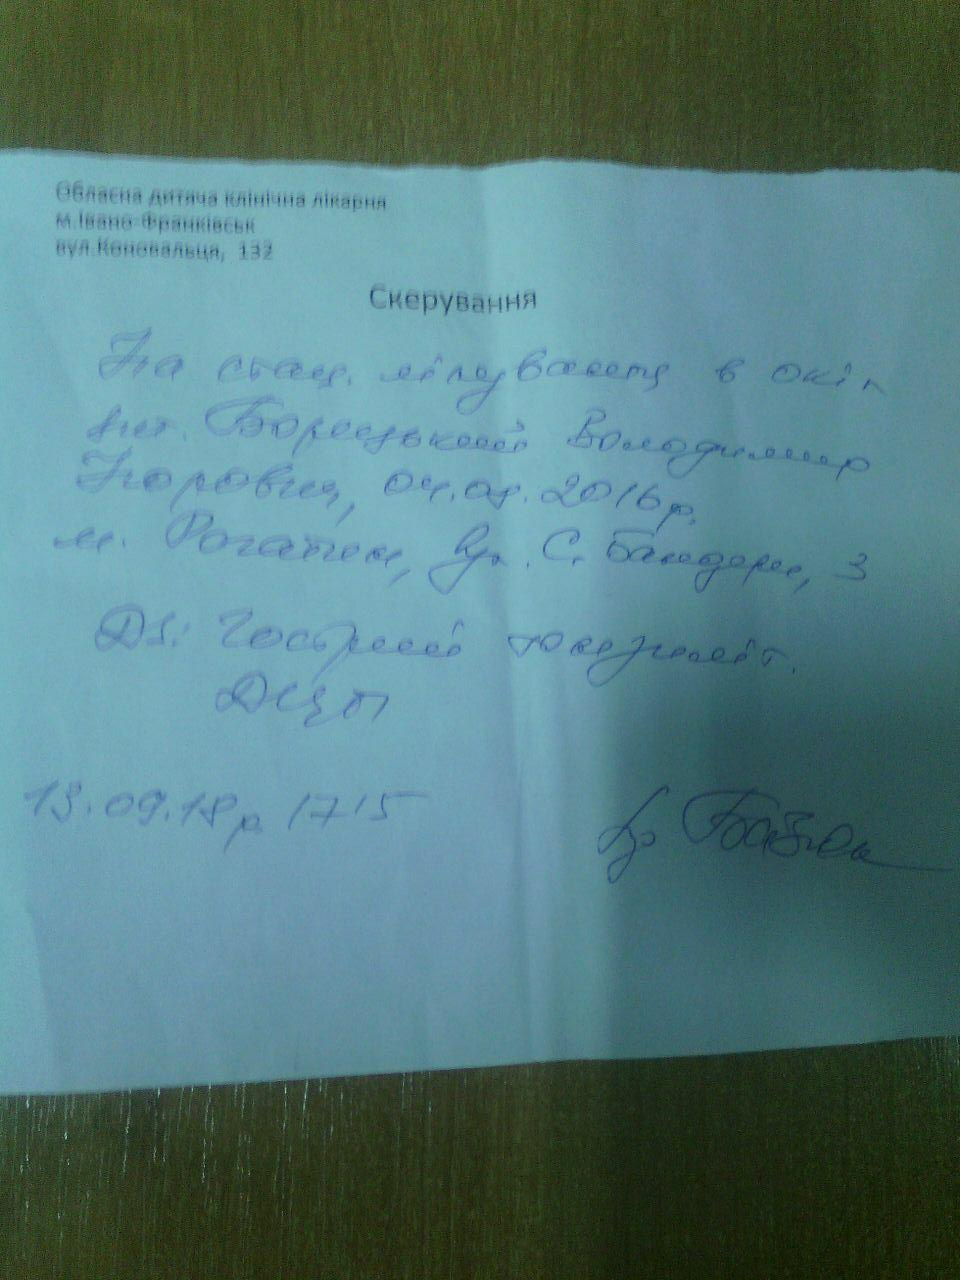 Обласна дитяча клінічна лікарня
м.Івано-Франківськ
вул.Коновальця, 132
Скерування
На стац. лікування в
Володимир
04. 2016р.
м. Рогатин, вул. С. Бандери, 3
Ds: Гострий тонзиліт.
ДЦП
13.09.18р. 1715